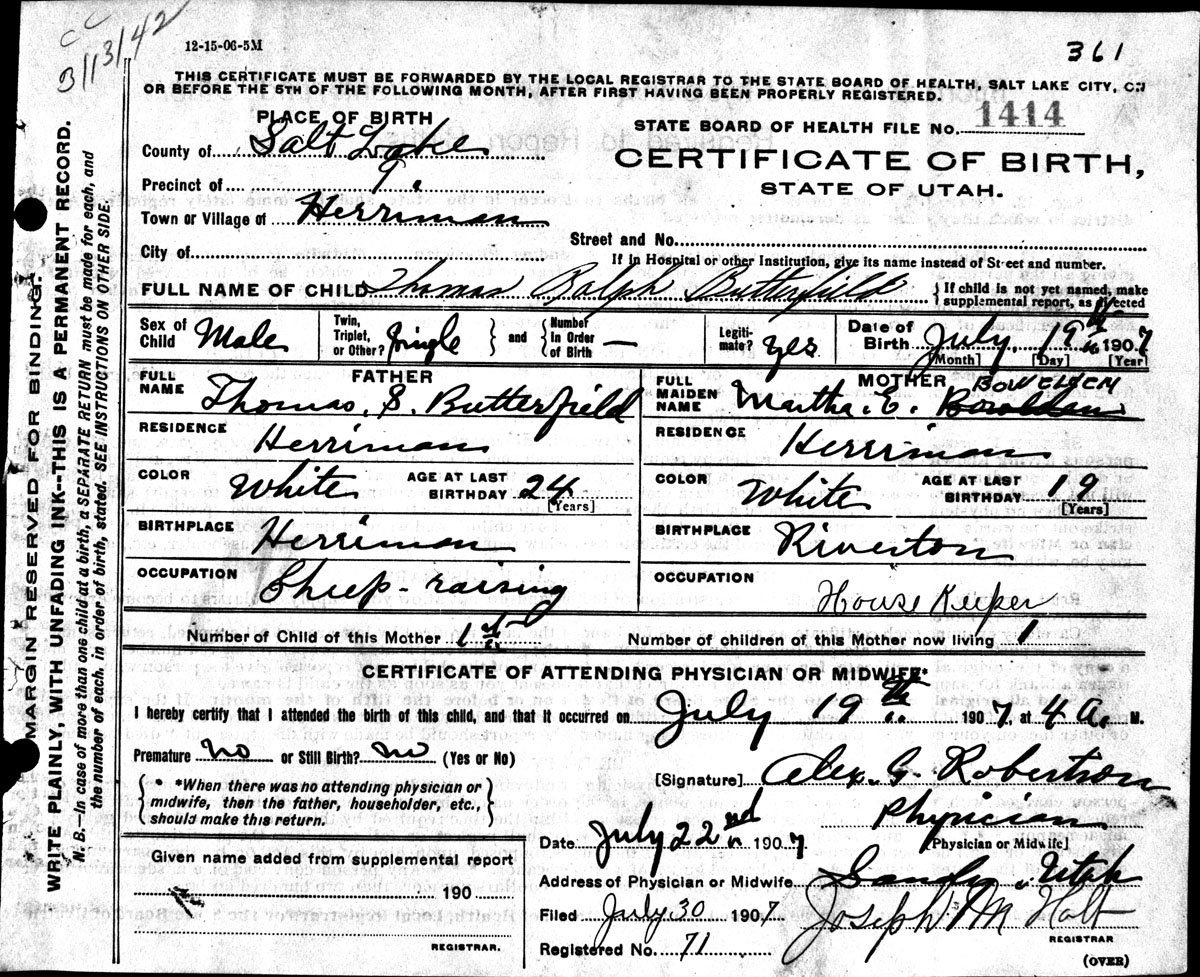 CC
3/13/42
12-15-06-5M
361
THIS CERTIFICATE MUST BE FORWARDED BY THE LOCAL REGISTRAR TO THE STATE BOARD OF HEALTH, SALT LAKE CITY, ON
OR BEFORE THE 5TH OF THE FOLLOWING MONTH, AFTER FIRST HAVING BEEN PROPERLY REGISTERED.
PLACE OF BIRTH
STATE BOARD OF HEALTH FILE NO. 1414
County of Salt Lake
CERTIFICATE OF BIRTH,
Precinct of 9
STATE OF UTAH.
Town or Village of Herriman
Street and No.
City of
If in Hospital or other Institution, give its name instead of Street and number.
FULL NAME OF CHILD Thomas Ralph Butterfield } If child is not yet named, make supplemental report, as directed
Sex of Child Male Twin, Triplet, or Other? Single } and { Number In Order of Birth — Legitimate? yes Date of Birth July, 19th 1907
[Month] [Day] [Year]
FATHER MOTHER
BOWELSEM
FULL NAME Thomas. S. Butterfield FULL MAIDEN NAME Martha. E.
RESIDENCE Herriman RESIDENCE Herriman
COLOR White AGE AT LAST BIRTHDAY 24 [Years] COLOR White AGE AT LAST BIRTHDAY 19 [Years]
BIRTHPLACE Herriman BIRTHPLACE Riverton
OCCUPATION Sheep-raising OCCUPATION House Keeper
Number of Child of this Mother 1st Number of children of this Mother now living 1
CERTIFICATE OF ATTENDING PHYSICIAN OR MIDWIFE*
I hereby certify that I attended the birth of this child, and that it occurred on July 19th 1907, at 4 A. M.
Premature no or Still Birth? no (Yes or No)
[Signature] Alex. G. Robertson
{ *When there was no attending physician or midwife, then the father, householder, etc., should make this return. }
Physician
[Physician or Midwife]
Date July 22nd 1907
Given name added from supplemental report
190
REGISTRAR.
Address of Physician or Midwife Sandy, Utah
Filed July 30 1907 Joseph M Holt
Registered No. 71 REGISTRAR
(OVER)
MARGIN RESERVED FOR BINDING.
WRITE PLAINLY, WITH UNFADING INK--THIS IS A PERMANENT RECORD.
N. B.—In case of more than one child at a birth, a SEPARATE RETURN must be made for each, and
the number of each, in order of birth, stated. SEE INSTRUCTIONS ON OTHER SIDE.